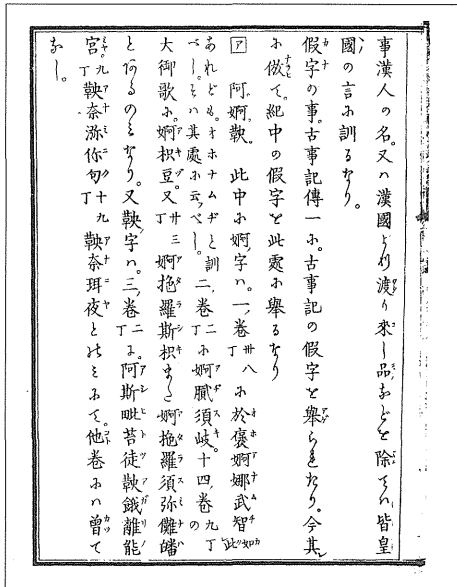 事漢人の名。又ハ漢國より渡り來し品などを除きてハ皆皇
國の言に訓るなり。
假字の事。古事記傳一に。古事記の假字を舉られたり。今其
に倣て。紀中の假字を此處に舉るなり
ア 阿婀鞅 此中に婀ノ字ハ。一ノ卷卅八丁に於褒婀娜武智如此
あれども。オホナムヂと訓べし。そハ其處に云べし。二ノ卷二丁に婀膩須岐。十四ノ卷九丁の
大御歌に。婀枳豆。又卅三丁婀拕羅斯枳また婀拕羅須弥儺皤
とあるのミなり。又鞅ノ字ハ。三ノ卷二丁に。阿斯毗苔徒鞅餓離能
宮。九丁鞅奈弥你句十九丁鞅奈珥夜とのミにて。他卷にハ曾て
なし。